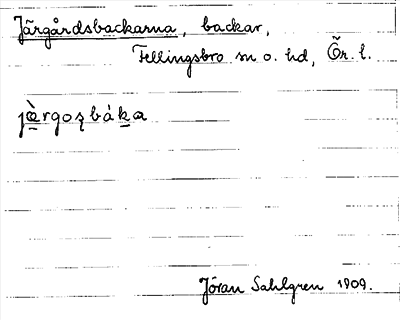 Järgårdsbackarna, backar,
Fellingsbro sn o. hd, Ör. l.
jæ̀rgoʂbáka
Jöran Sahlgren 1909.